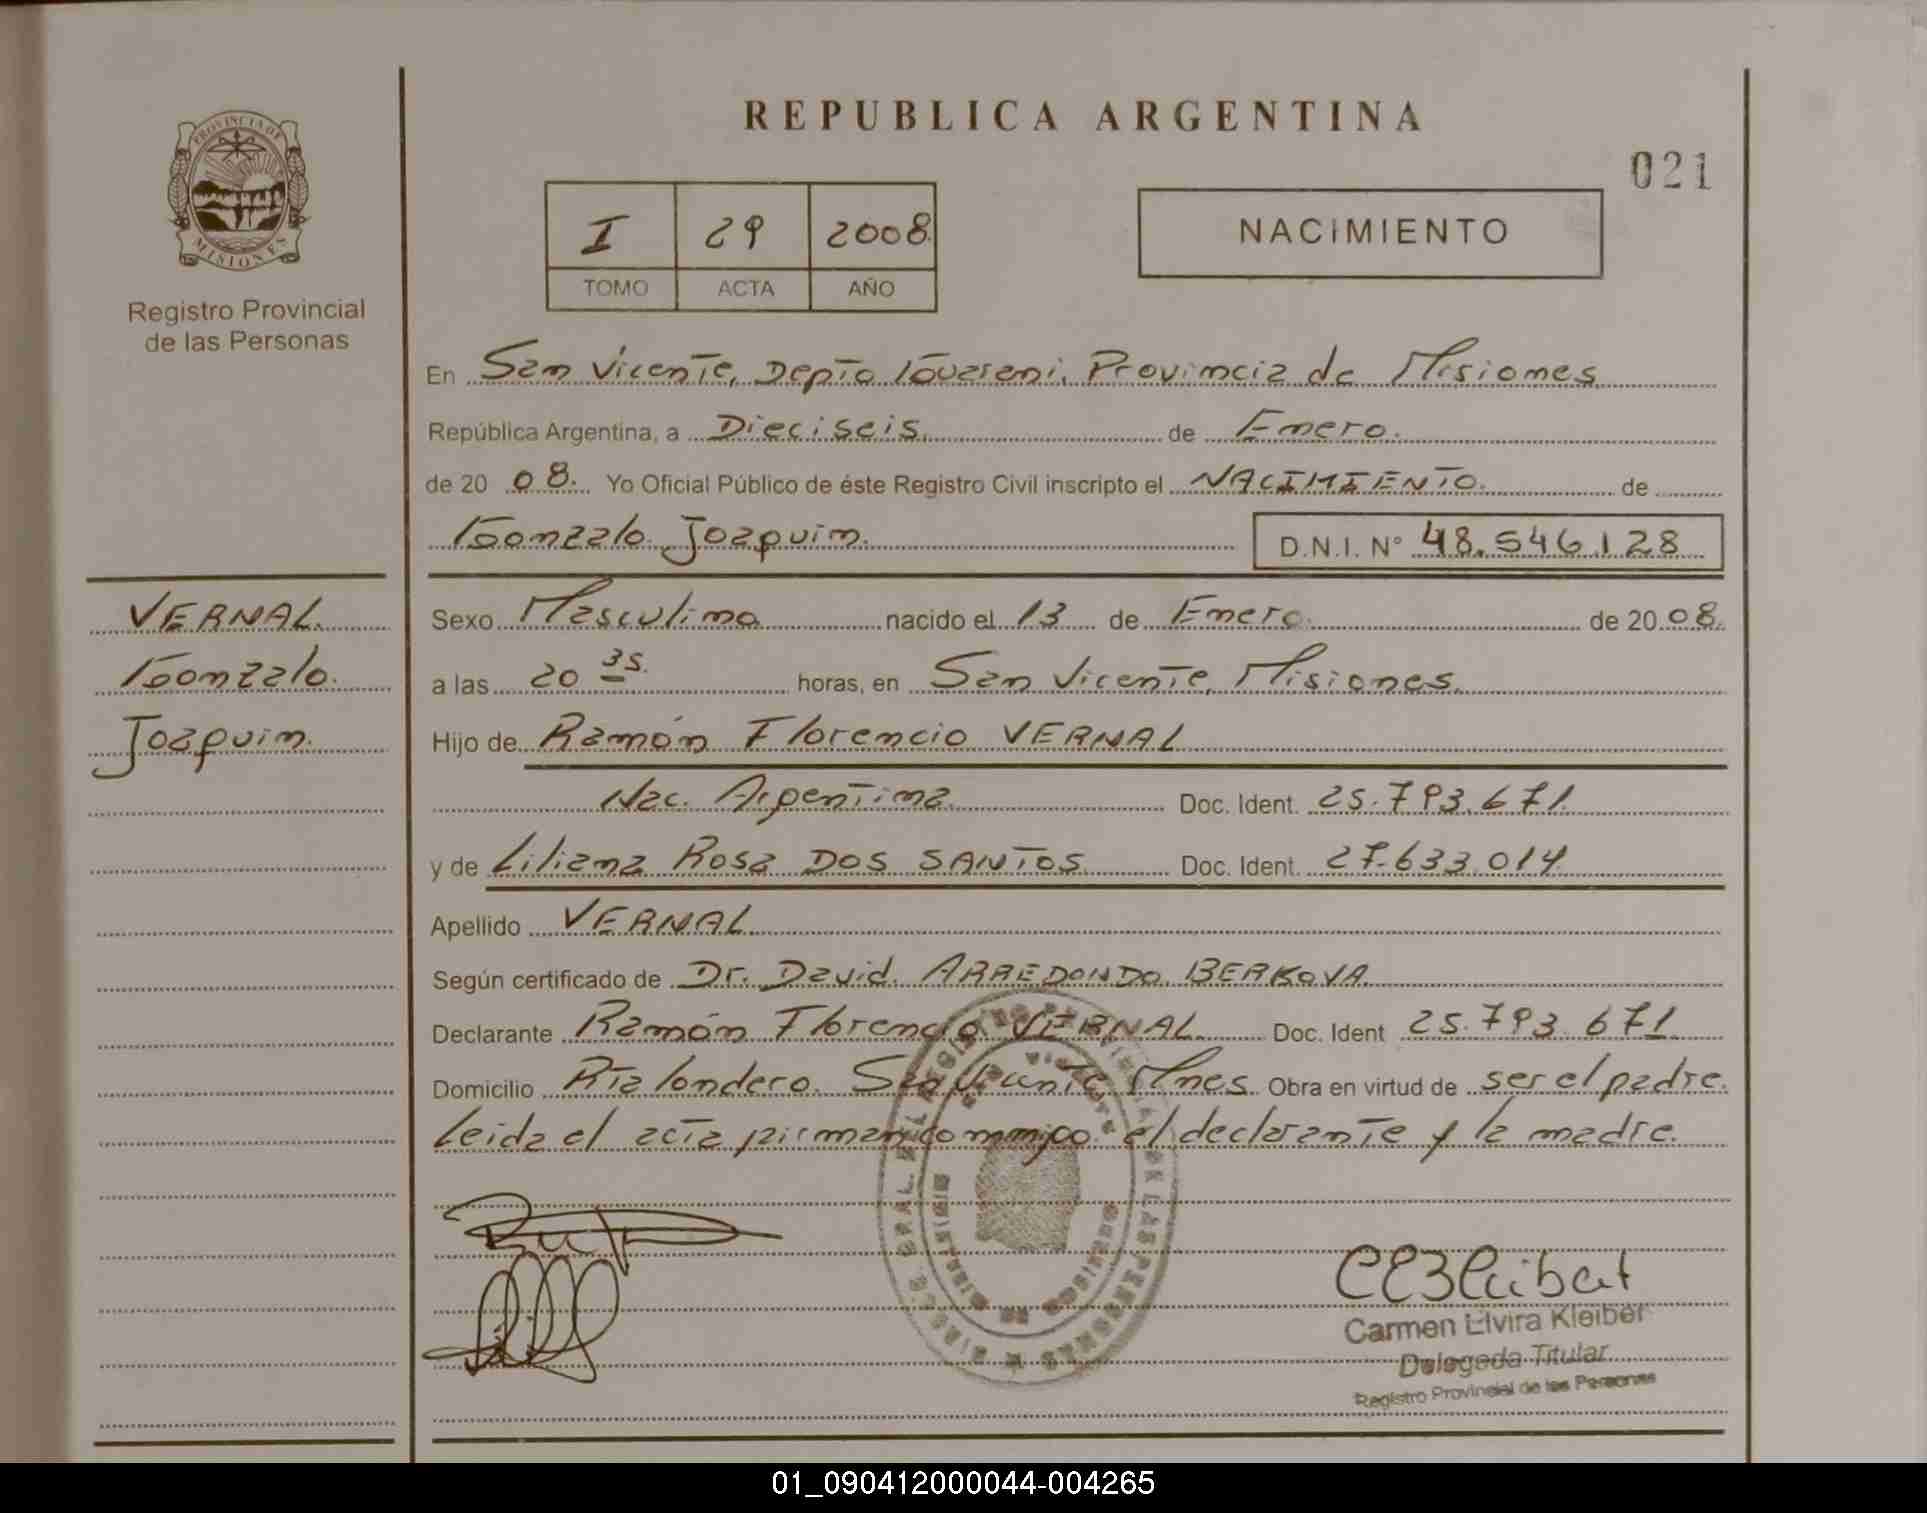 REPUBLICA ARGENTINA
021
PROVINCIA DE
MISIONES
Registro Provincial
de las Personas
I 29 2008
TOMO ACTA AÑO
NACIMIENTO
En San Vicente, Depto Guarani, Provincia de Misiones
República Argentina, a Dieciseis. de Enero.
de 20 08. Yo Oficial Público de éste Registro Civil inscripto el NACIMIENTO. de
Gonzalo Joaquin. D.N.I. N° 48.546.128
VERNAL
Gonzalo.
Joaquin.
Sexo Masculino nacido el 13 de Enero. de 20 08.
a las 20 35. horas, en San Vicente, Misiones.
Hijo de Ramón Florencio VERNAL
Nac. Argentina. Doc. Ident. 25.793.671.
y de Liliana Rosa DOS SANTOS. Doc. Ident. 27.633.014.
Apellido VERNAL
Según certificado de Dr. David ARREDONDO BERKOVA.
Declarante Ramón Florencio VERNAL Doc. Ident 25.793.671.
Domicilio Rta londero. San Vicente Mnes. Obra en virtud de ser el padre.
Leida el acta firman conmigo el declarante y la madre.
Carmen Elvira Kleiber
Delegada Titular
Registro Provincial de las Personas
01_090412000044-004265